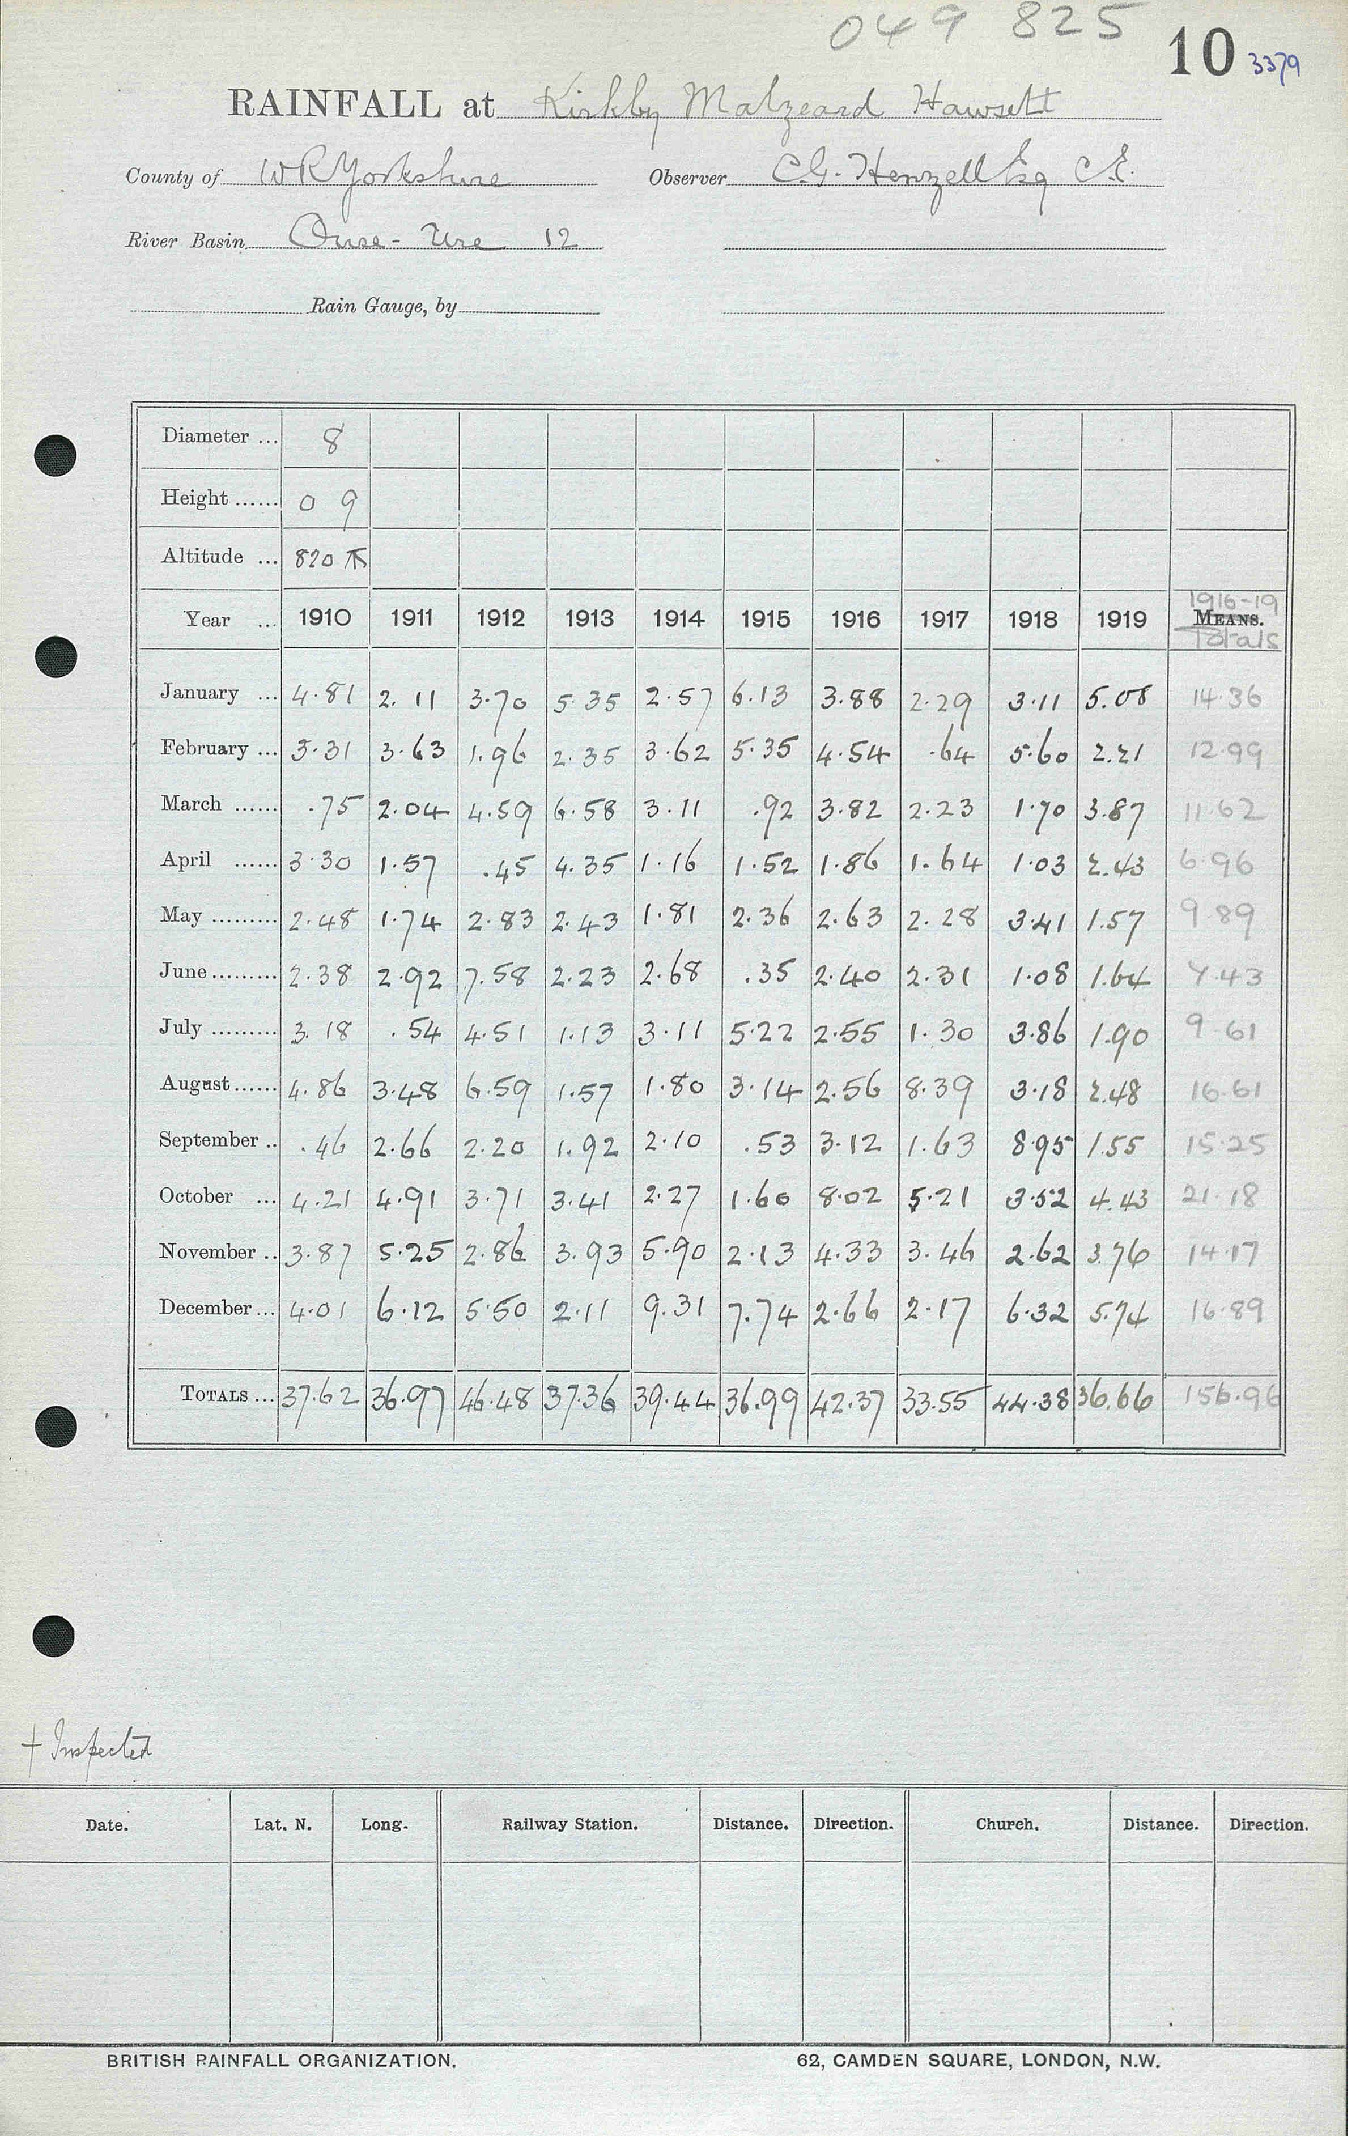 049 825
10 3379
RAINFALL at Kirkby Malzeard Hawsett
County of W R Yorkshire Observer C.G. Henzell Esq C.E.
River Basin Ouse - Ure 12
Rain Gauge, by
Diameter ... 8
Height ...... 0 9
Altitude ... 820
Year ... 1910 1911 1912 1913 1914 1915 1916 1917 1918 1919 1916-19 MEANS. Totals
January ... 4.81 2.11 3.70 5.35 2.57 6.13 3.88 2.29 3.11 5.08 14.36
February ... 3.31 3.63 1.96 2.35 3.62 5.35 4.54 .64 5.60 2.21 12.99
March ...... .75 2.04 4.59 6.58 3.11 .92 3.82 2.23 1.70 3.87 11.62
April ...... 3.30 1.57 .45 4.35 1.16 1.52 1.86 1.64 1.03 2.43 6.96
May ......... 2.48 1.74 2.83 2.43 1.81 2.36 2.63 2.28 3.41 1.57 9.89
June ......... 2.38 2.92 7.58 2.23 2.68 .35 2.40 2.31 1.08 1.64 7.43
July ......... 3.18 .54 4.51 1.13 3.11 5.22 2.55 1.30 3.86 1.90 9 61
August ...... 4.86 3.48 6.59 1.57 1.80 3.14 2.56 8.39 3.18 2.48 16.61
September .. .46 2.66 2.20 1.92 2.10 .53 3.12 1.63 8.95 1.55 15.25
October ... 4.21 4.91 3.71 3.41 2.27 1.60 8.02 5.21 3.52 4.43 21.18
November .. 3.87 5.25 2.86 3.93 5.90 2.13 4.33 3.46 2.62 3.76 14.17
December ... 4.01 6.12 5.50 2.11 9.31 7.74 2.66 2.17 6.32 5.74 16.89
TOTALS ... 37.62 36.97 46.48 37.36 39.44 36.99 42.37 33.55 44.38 36.66 156.96
+ Inspected
Date. Lat. N. Long. Railway Station. Distance. Direction. Church. Distance. Direction.
BRITISH RAINFALL ORGANIZATION. 62, CAMDEN SQUARE, LONDON, N.W.